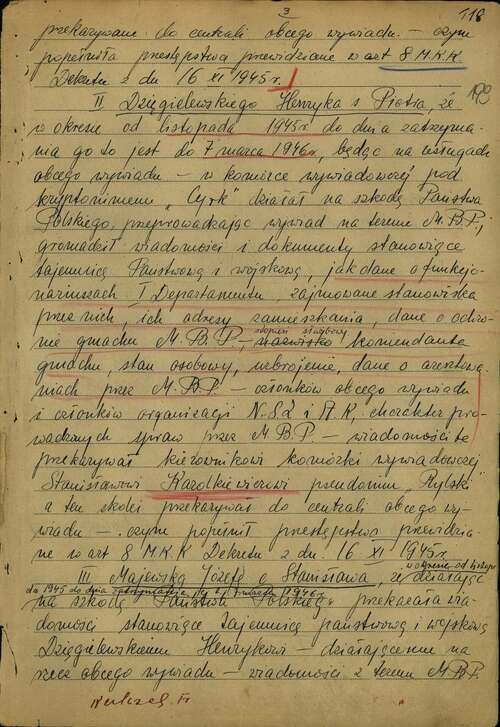 3
118
przekazywane do centrali obcego wywiadu – czym
popełniła przestępstwa przewidziane w art 8 M.K.K.
Dekretu z dn 16 XI 1945 r.
II Dzięgielewskiego Henryka s Piotra, że
w okresie od listopada 1945 r. do dnia zatrzyma-
nia go to jest do 7 marca 1946 r., będąc na usługach
obcego wywiadu – w komórce wywiadowczej pod
kryptonimem „Cyrk" działał na szkodę Państwa
Polskiego, przeprowadzając wywiad na terenie M.B.P.,
gromadził wiadomości i dokumenty stanowiące
tajemnicę Państwową i wojskową, jak dane o funkcjo-
nariuszach I Departamentu, zajmowane stanowiska
przez nich, ich adresy zamieszkania, dane o ochro-
nie gmachu M.B.P. – stopień służbowy nazwisko komendanta
gmachu, stan osobowy, uzbrojenie, dane o aresztowa-
niach przez M.B.P. – członków obcego wywiadu
i członków organizacji N.S.Z i A.K, charakter pro-
wadzonych spraw przez M.B.P. – wiadomości te
przekazywał kierownikowi komórki wywiadowczej
Stanisławowi Karolkiewiczowi pseudonim „Rylski"
a ten z kolei przekazywał do centrali obcego wy-
wiadu – czym popełnił przestępstwo przewidzia-
ne w art 8 M.K.K Dekretu z dn. 16 XI 1945 r.
III Majewską Józefę c Stanisława, że w okresie od listopa-
da 1945 do dnia zatrzymania to jest 7 marca 1946 r. działając
na szkodę Państwa Polskiego przekazała wia-
domości stanowiące tajemnicę państwową i wojskową
Dzięgielewskiemu Henrykowi – działającemu na
rzecz obcego wywiadu – wiadomości z terenu M.B.P.